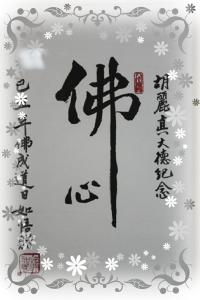 胡麗真大德紀念
佛心
己丑年佛成道日如悟